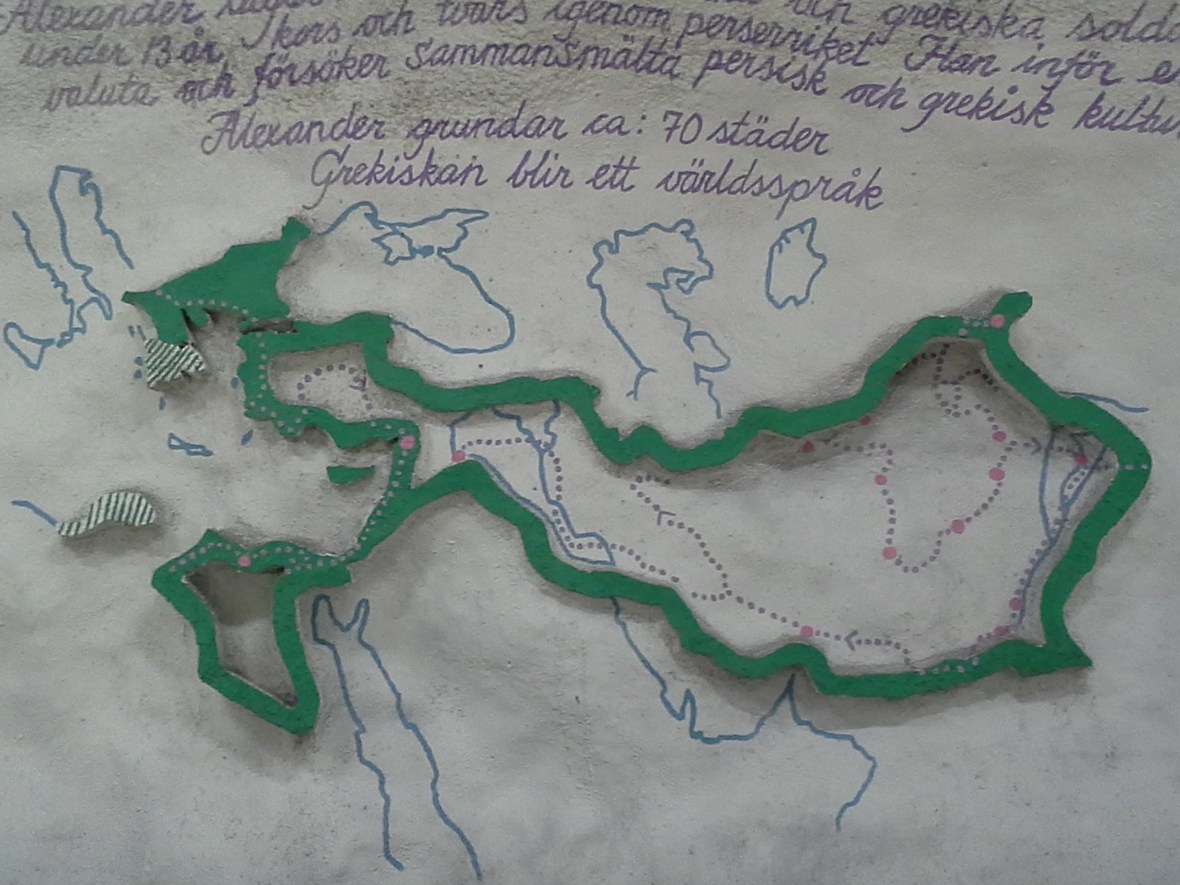 Alexander och grekiska
under 13 år, I kors och tvärs igenom perserriket Han inför
valuta och försöker sammansmälta persisk och grekisk kultur
Alexander grundar ca: 70 städer
Grekiskan blir ett världsspråk